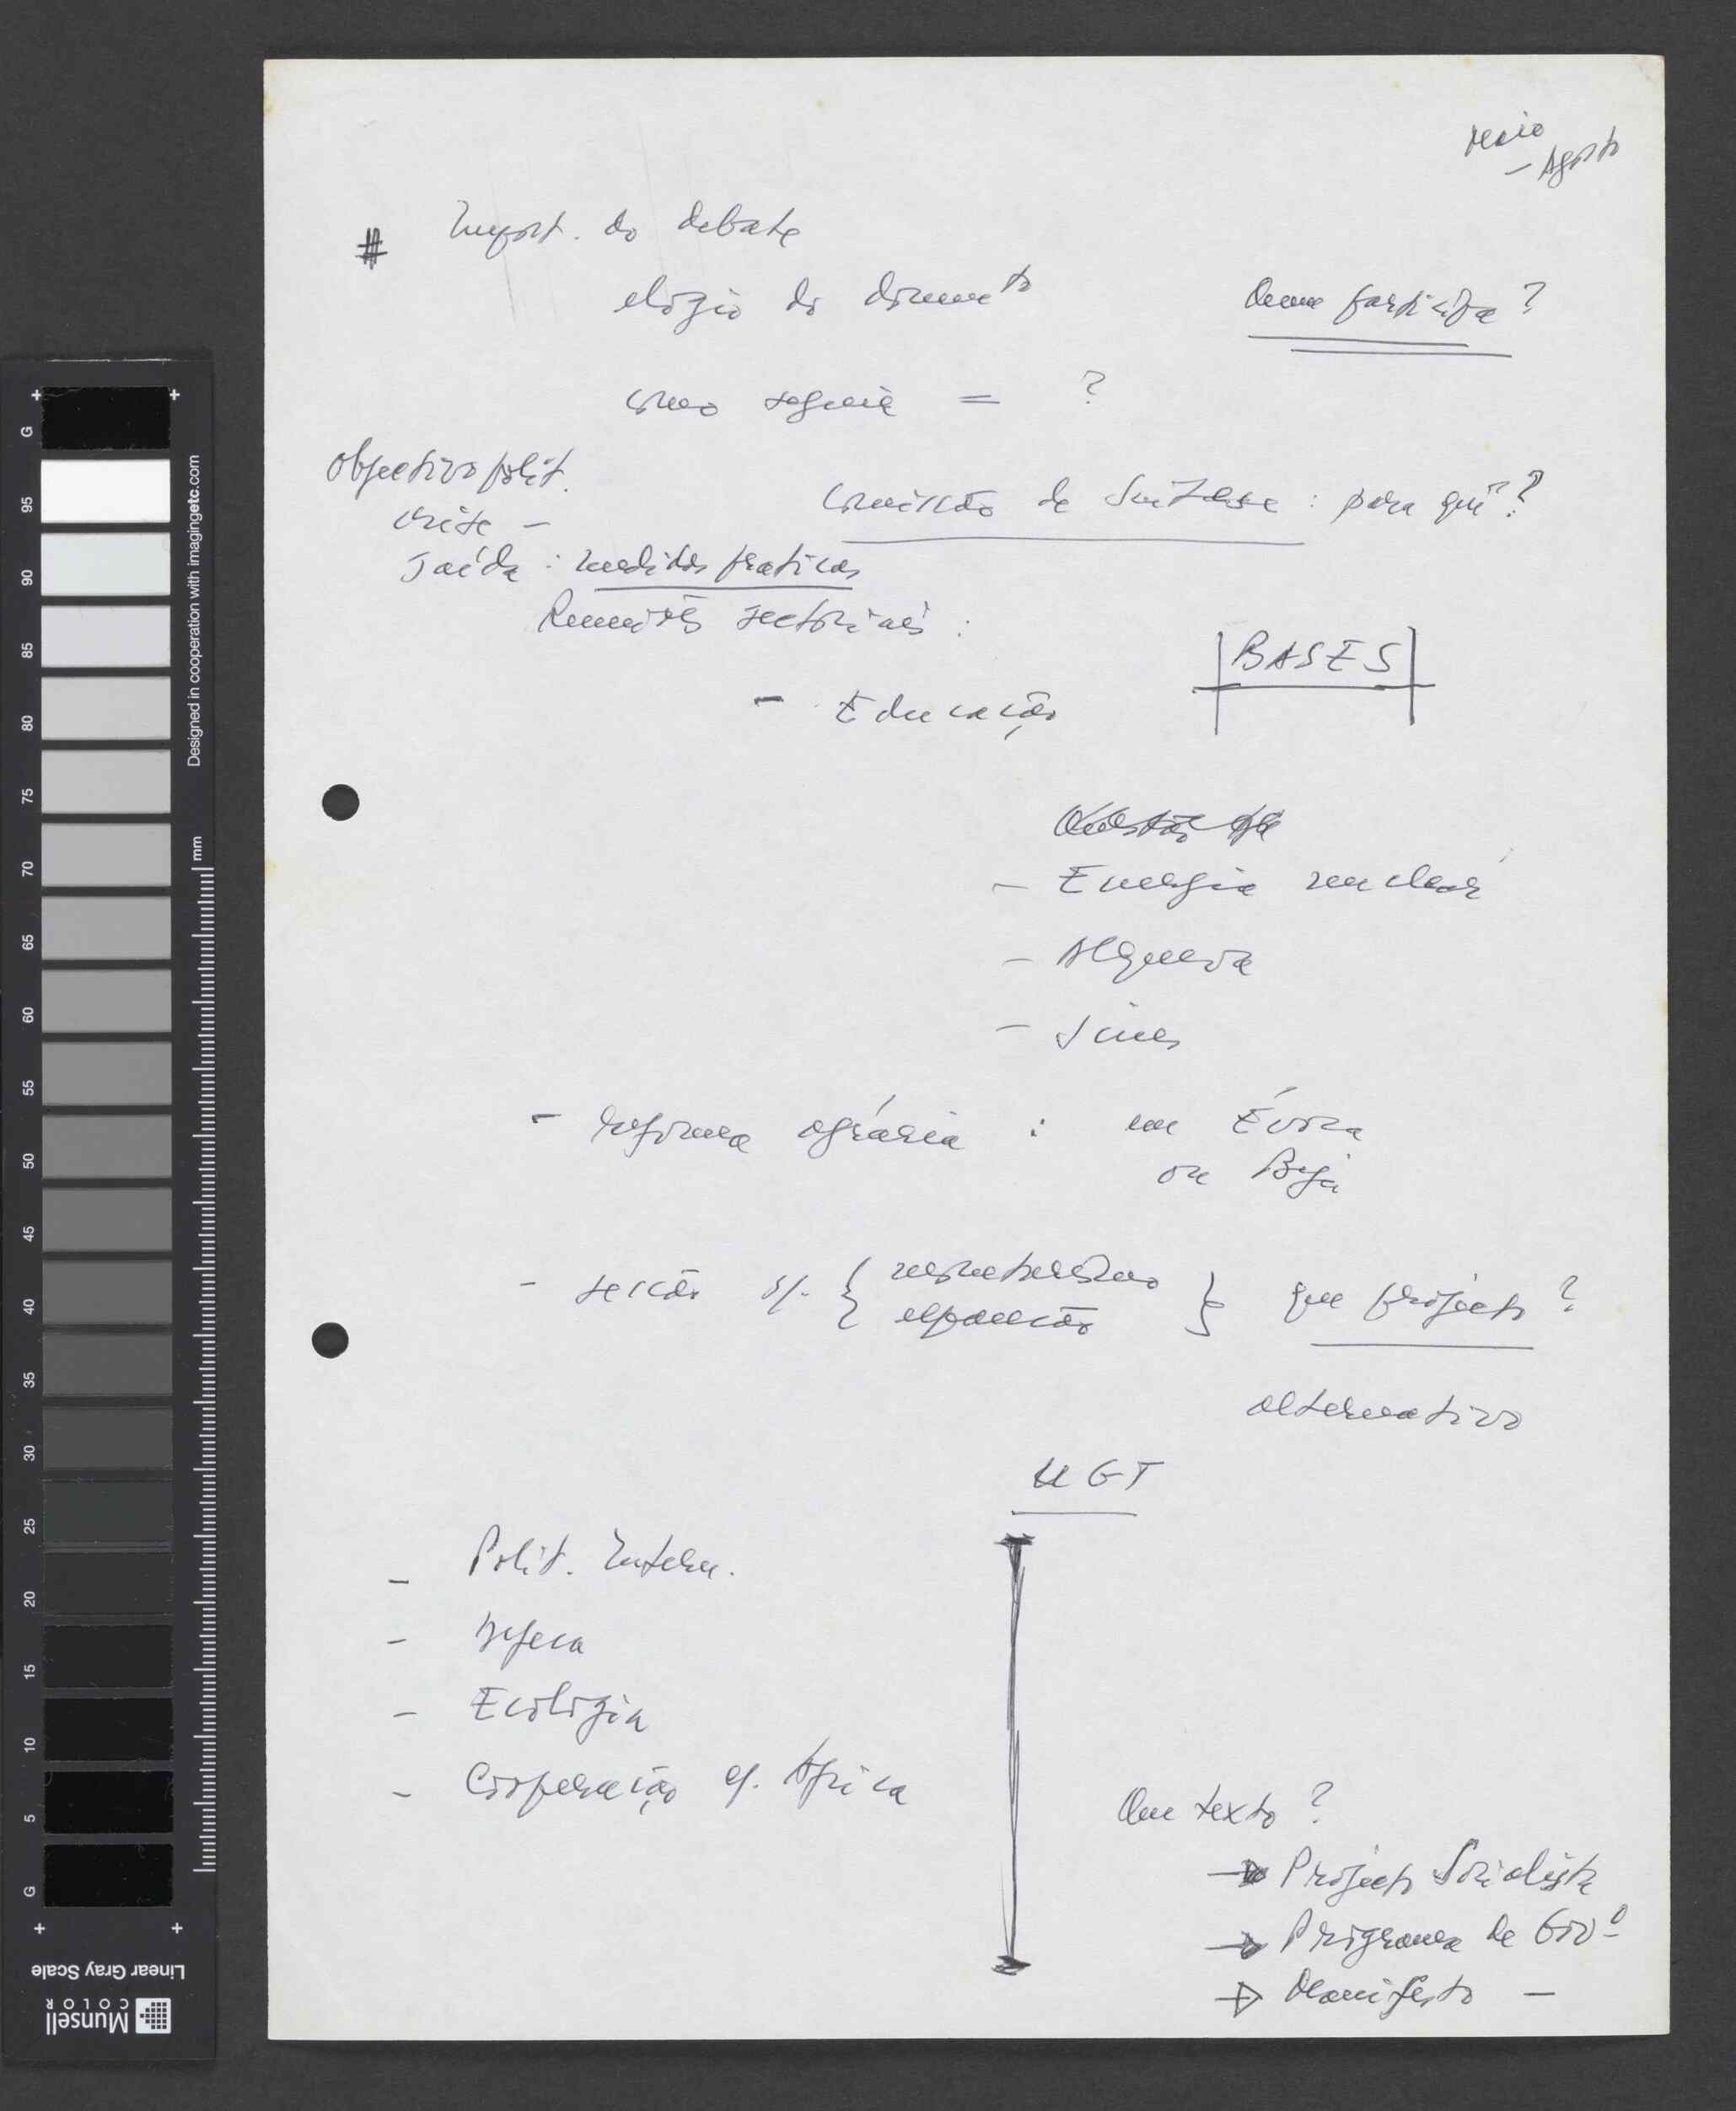 Maio
– Agosto
# Import. do debate
elogio do documento
Quem participa?
como seguir = ?
Objectivo polít.
crise –
saída : medidas práticas
Comissão de Síntese : para quê?
Reuniões sectoriais :
|BASES|
– Educação
– Energia nuclear
– Alqueva
– Sines
– Reforma agrária : em Évora
ou Beja
– secção s/. { monetarismo
expansão } que projecto ?
alternativo
UGT
– Polít. Extern.
– Defesa
– Ecologia
– Cooperação c/. África
Que texto ?
→ Projecto Socialista
→ Programa de Govº
→ Manifesto –
G
95
90
85
80
75
70
65
60
55
50
45
40
35
30
25
20
15
10
5
G
mm
Designed in cooperation with imagingetc.com
Linear Gray Scale
Munsell
COLOR